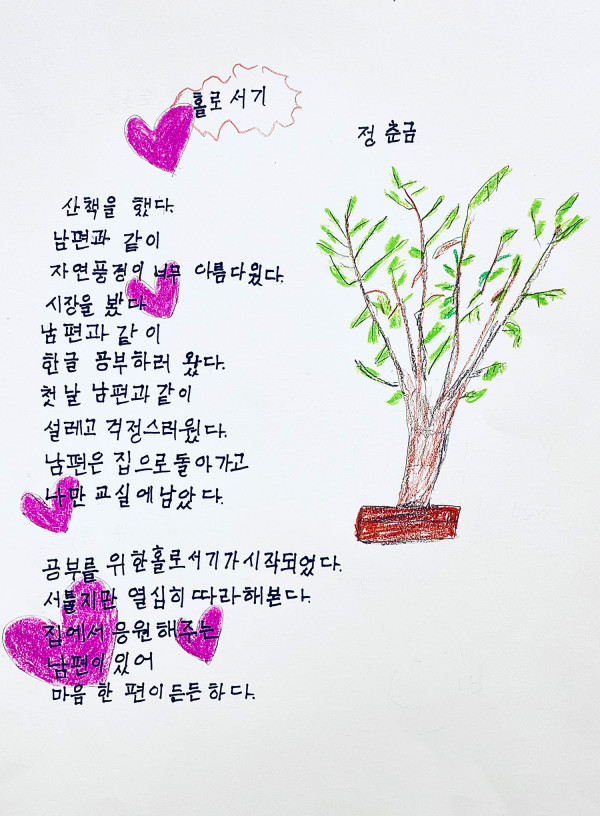 홀로 서기
정 춘금
산책을 했다.
남편과 같이
자연풍경이 너무 아름다웠다.
시장을 봤다.
남편과 같이
한글 공부하러 왔다.
첫날 남편과 같이
설레고 걱정스러웠다.
남편은 집으로 돌아가고
나만 교실에 남았다.
공부를 위한 홀로서기가 시작되었다.
서툴지만 열심히 따라해본다.
집에서 응원해주는
남편이 있어
마음 한 편이 든든하다.